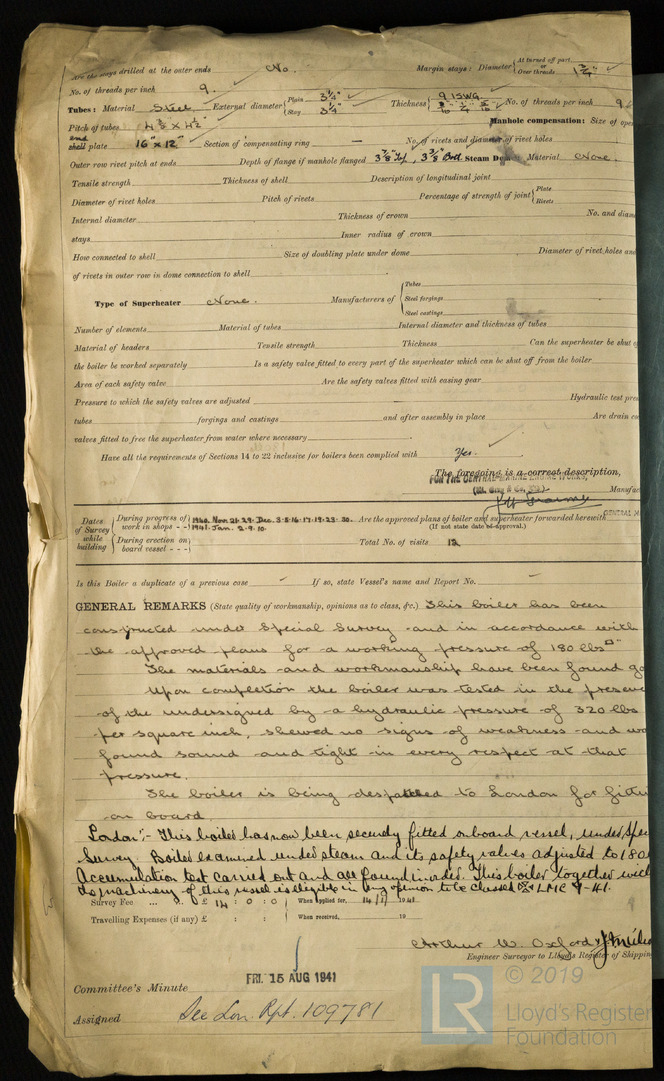 Are the stays drilled at the outer ends No. Margin stays: Diameter { At turned off part, or Over threads 1 3/4"
No. of threads per inch 9.
Tubes: Material Steel External diameter { Plain 3 1/4" Stay 3 1/4" Thickness { 9 ISWG 5/16" 1/4" No. of threads per inch 9
Pitch of tubes 4 1/2" x 4 1/2" Manhole compensation: Size of open
end shell plate 16" x 12" Section of compensating ring — No. of rivets and diameter of rivet holes
Outer row rivet pitch at ends Depth of flange if manhole flanged 3 7/8" Top, 3 3/8" Bott. Steam Dome: Material None.
Tensile strength Thickness of shell Description of longitudinal joint
Diameter of rivet holes Pitch of rivets Percentage of strength of joint { Plate Rivets
Internal diameter Thickness of crown No. and diam
stays Inner radius of crown
How connected to shell Size of doubling plate under dome Diameter of rivet holes and
of rivets in outer row in dome connection to shell
Type of Superheater None. Manufacturers of { Tubes Steel forgings Steel castings
Number of elements Material of tubes Internal diameter and thickness of tubes
Material of headers Tensile strength Thickness Can the superheater be shut o
the boiler be worked separately Is a safety valve fitted to every part of the superheater which can be shut off from the boiler
Area of each safety valve Are the safety valves fitted with easing gear
Pressure to which the safety valves are adjusted Hydraulic test pre
tubes forgings and castings and after assembly in place Are drain co
valves fitted to free the superheater from water where necessary
Have all the requirements of Sections 14 to 22 inclusive for boilers been complied with Yes.
The foregoing is a correct description,
FOR THE CENTRAL MARINE ENGINE WORKS,
Manufac
GENERAL M
Dates of Survey while building { During progress of work in shops - - 1940. Nov. 21. 29. Dec. 3. 5. 16. 17. 19. 23. 30. 1941. Jan. 2. 9. 10. Are the approved plans of boiler and superheater forwarded herewith
(If not state date of approval.)
During erection on board vessel - - - Total No. of visits 12
Is this Boiler a duplicate of a previous case If so, state Vessel's name and Report No.
GENERAL REMARKS (State quality of workmanship, opinions as to class, &c.) This boiler has been
constructed under Special Survey and in accordance with
the approved plans for a working pressure of 180 lbs □"
The materials and workmanship have been found go
Upon completion the boiler was tested in the presenc
of the undersigned by a hydraulic pressure of 320 lbs
per square inch, shewed no signs of weakness and wa
found sound and tight in every respect at that
pressure.
The boiler is being despatched to London for fittin
on board.
London:- This boiler has now been securely fitted onboard vessel, under Spec
Survey. Boiler examined under steam and its safety valves adjusted to 180
Accumulation test carried out and all found in order. This boiler together with
its machinery of this vessel is eligible in my opinion to be classed LMC 7-41.
Survey Fee ... ... £ 14 : 0 : 0 When applied for, 14/1/1941
Travelling Expenses (if any) £ : : When received, 19
Arthur W. Oxford
Engineer Surveyor to Lloyd's Register of Shippin
Committee's Minute FRI. 15 AUG 1941
Assigned See Lon. Rpt. 109781
LR © 2019
Lloyd's Register
Foundation